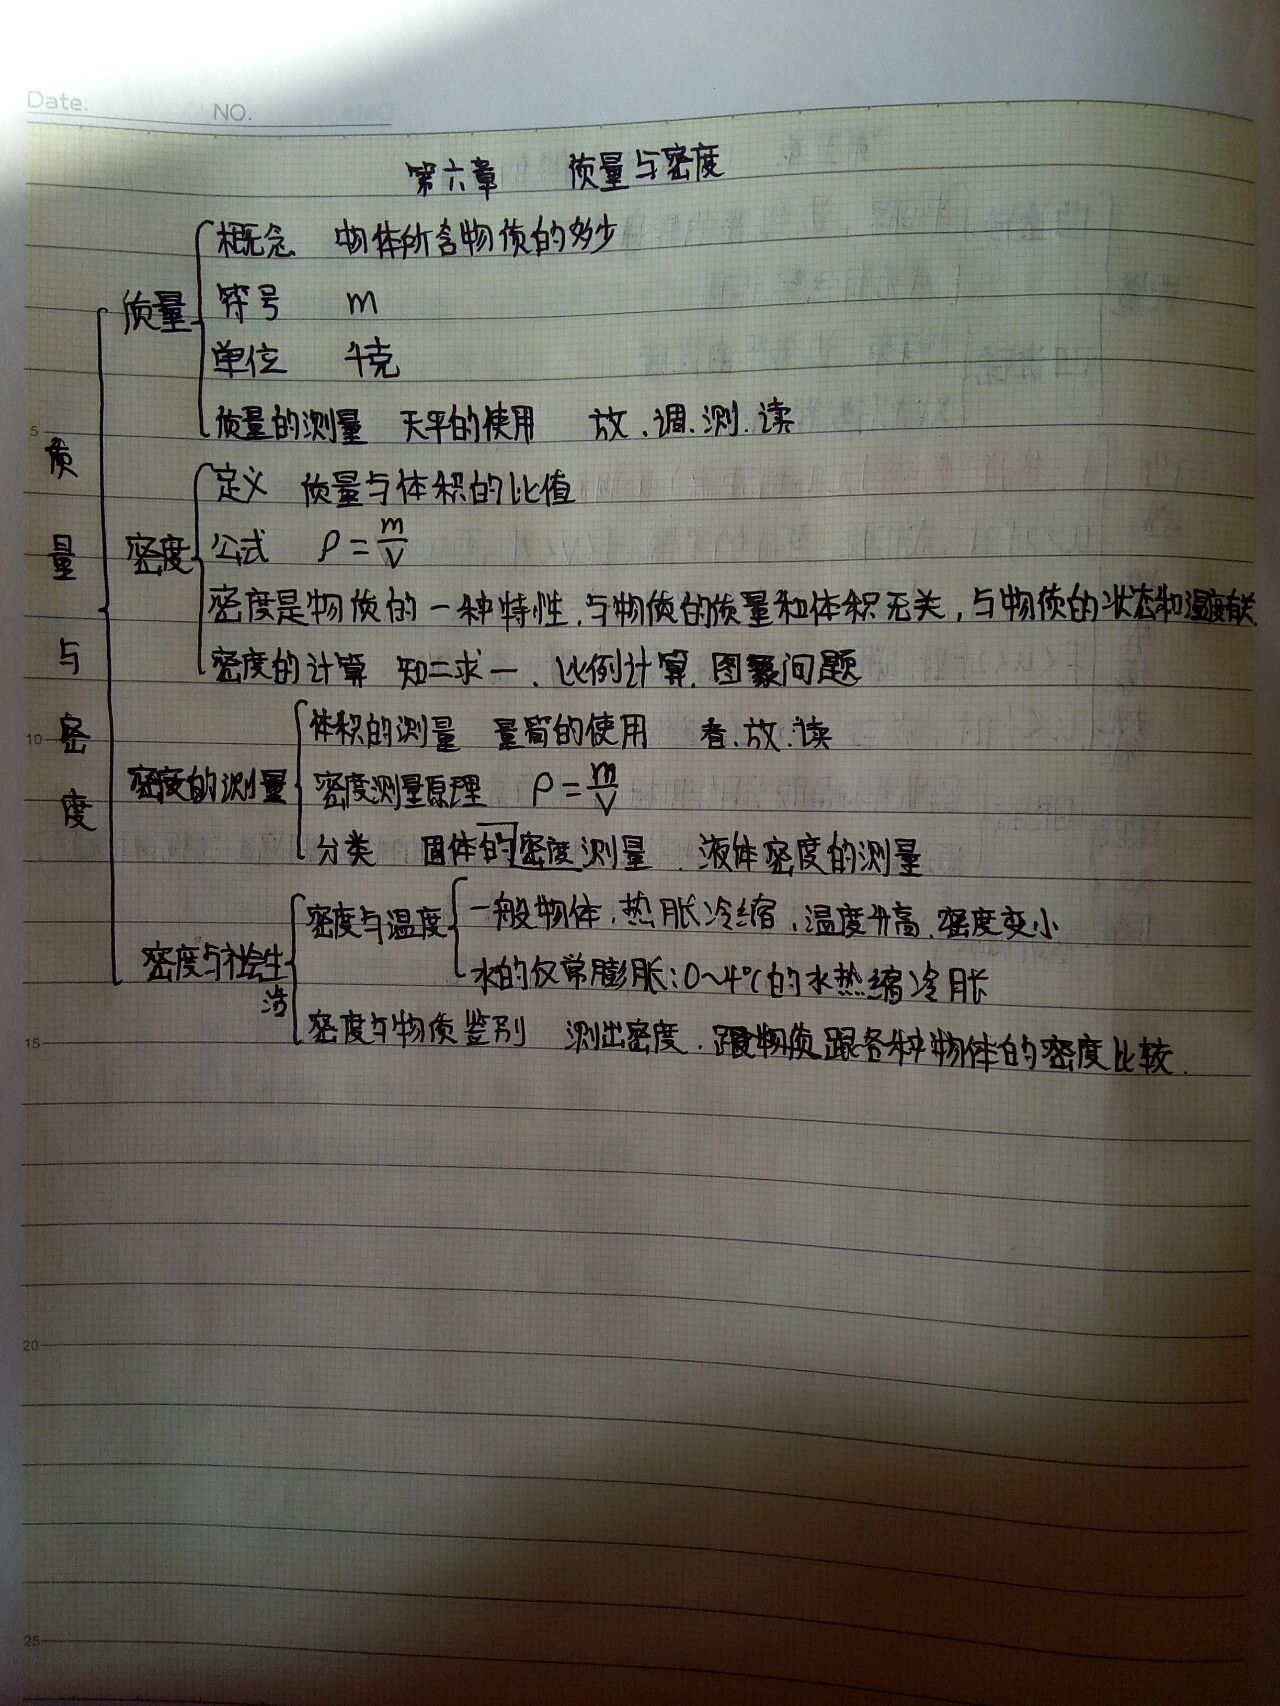 Date.
NO.
第六章 质量与密度
概念 物体所含物质的多少
质量
符号 m
单位 千克
质量的测量 天平的使用 放、调、测、读
5
质量与密度
定义 质量与体积的比值
密度
公式 ρ=m/V
密度是物质的一种特性,与物质的质量和体积无关,与物质的状态和温度有关.
密度的计算 知二求一、比例计算、图象问题
体积的测量 量筒的使用 看、放、读
10
密度的测量
密度测量原理 ρ=m/V
分类 固体的密度测量、液体密度的测量
密度与温度
一般物体,热胀冷缩,温度升高,密度变小
密度与社会生活
水的仅常膨胀:0~4℃的水热缩冷胀
密度与物质鉴别 测出密度、跟各种物体的密度比较.
15
20
25